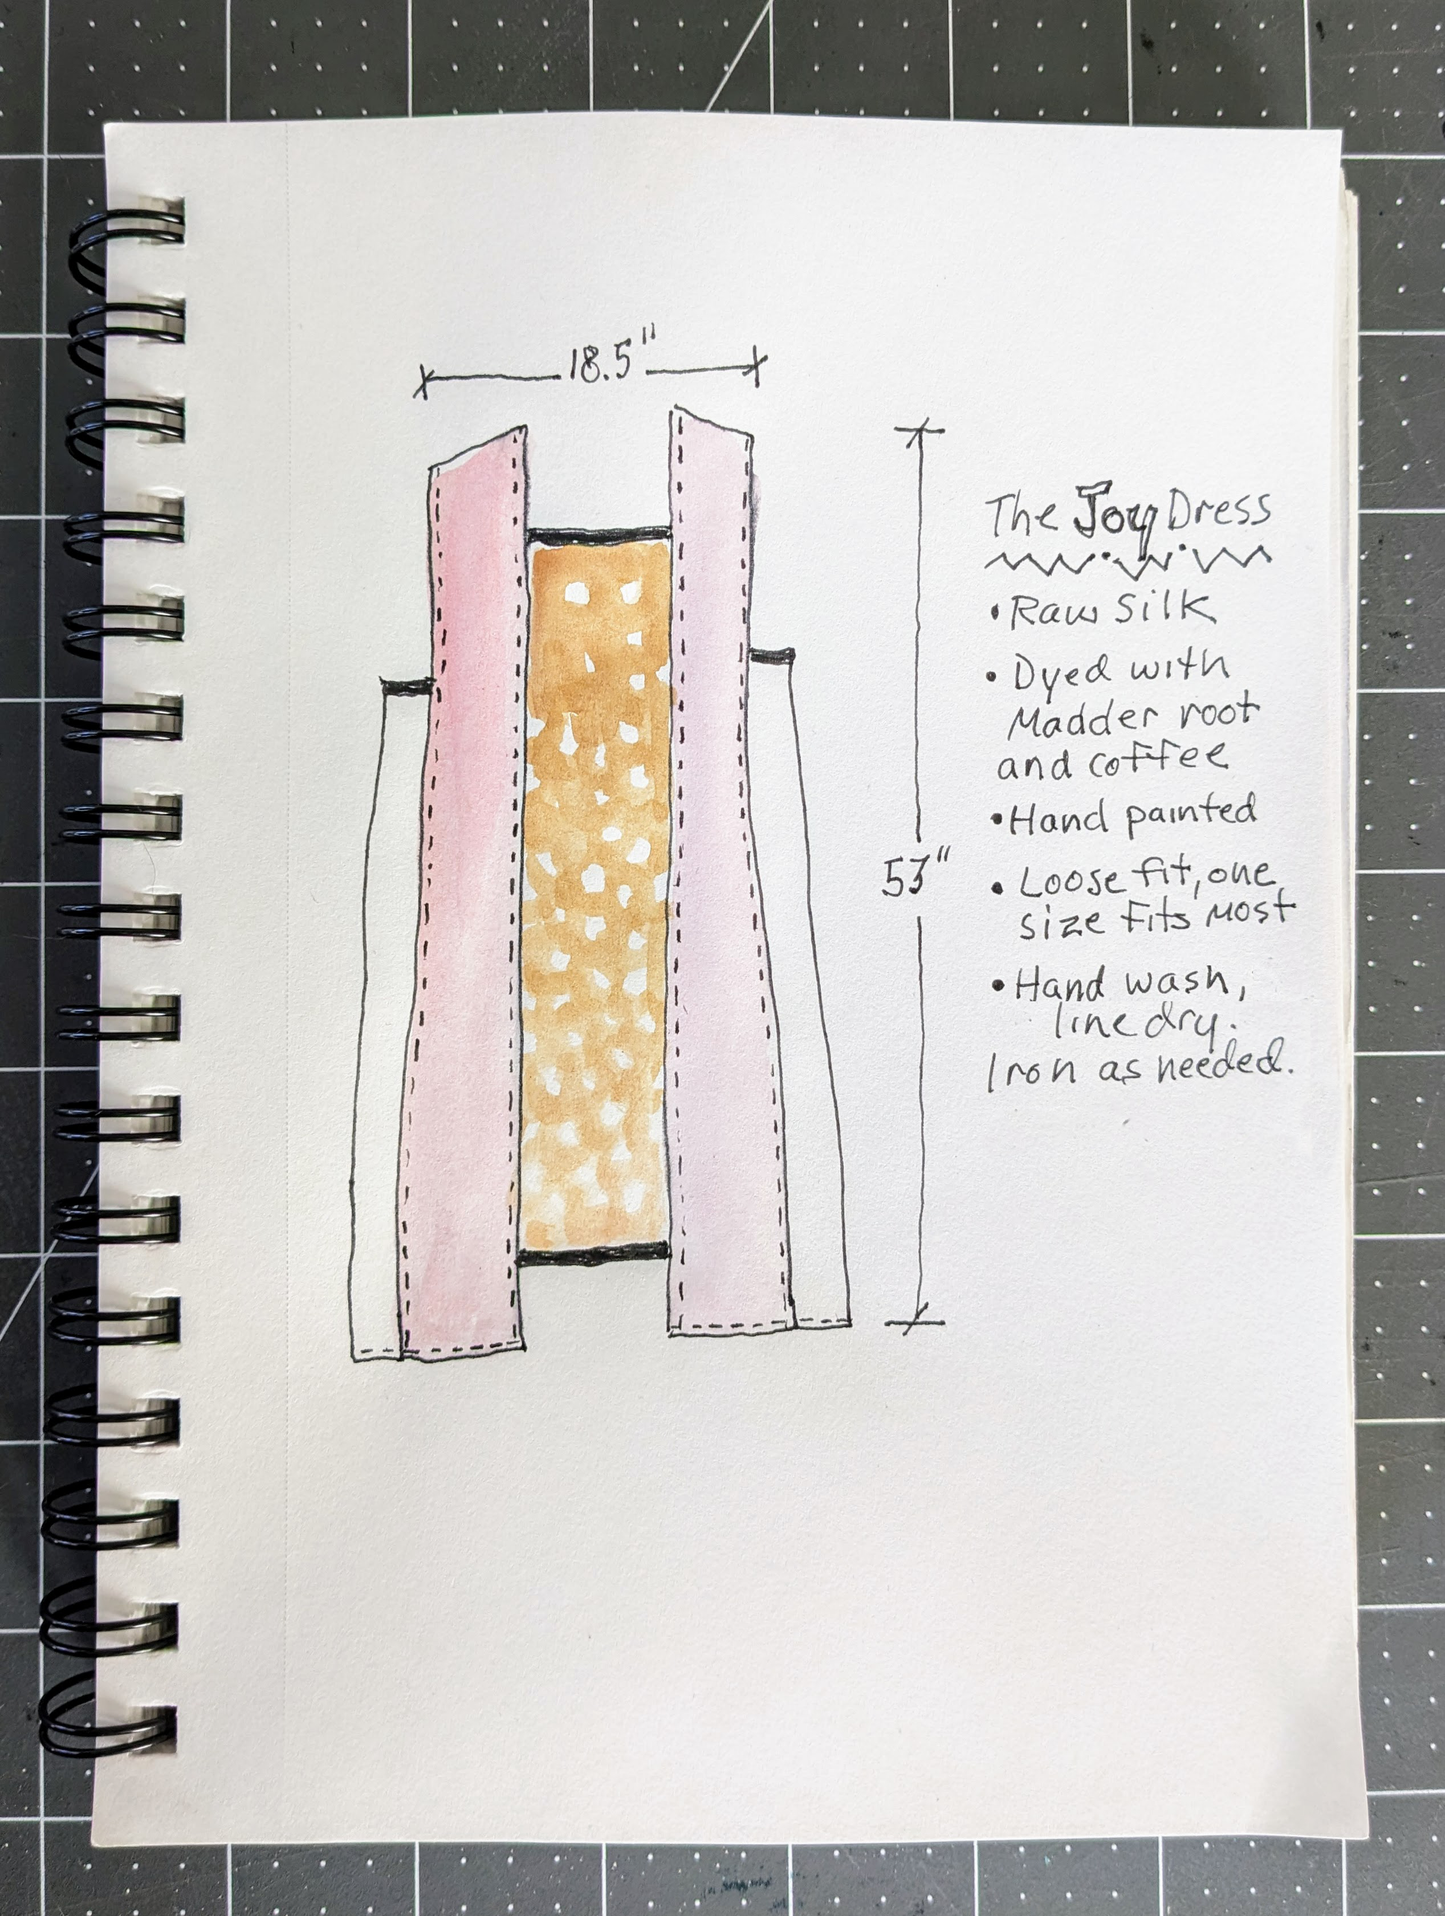 18.5"
The Joy Dress
• Raw Silk
• Dyed with
Madder root
and coffee
• Hand painted
53"
• Loose fit, one
size fits most
• Hand wash,
line dry.
Iron as needed.